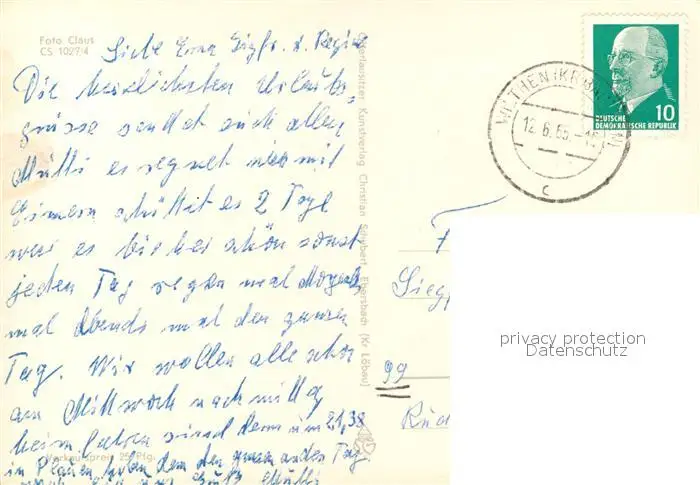 Foto Claus
CS 1027/4
Liebe Erna Sigfr. u. Regin
Die herzlichsten Urlaubs,
grüsse sendet euch allen
Mutti es regnet nur mit
Eimern schüttet es 2 Tage
war es bisher schön sonst
jeden Tag regen mal Morgends
mal Abends mal den ganzen
Tag. Wir wollen alle schon
am Mittwoch nachmittag
heim fahren sind dann um 21,38
in Plauen den ganzen Tag.
Mutti
Verkaufspreis 25 Pfg.
Oberlausitzer Kunstverlag Christian Schubert Ebersbach (Kr. Löbau)
WILTHEN (KR. BAUTZEN)
12.6.65.-16
c
10
DEUTSCHE
DEMOKRATISCHE REPUBLIK
F
Siegf
99
Rud
privacy protection
Datenschutz